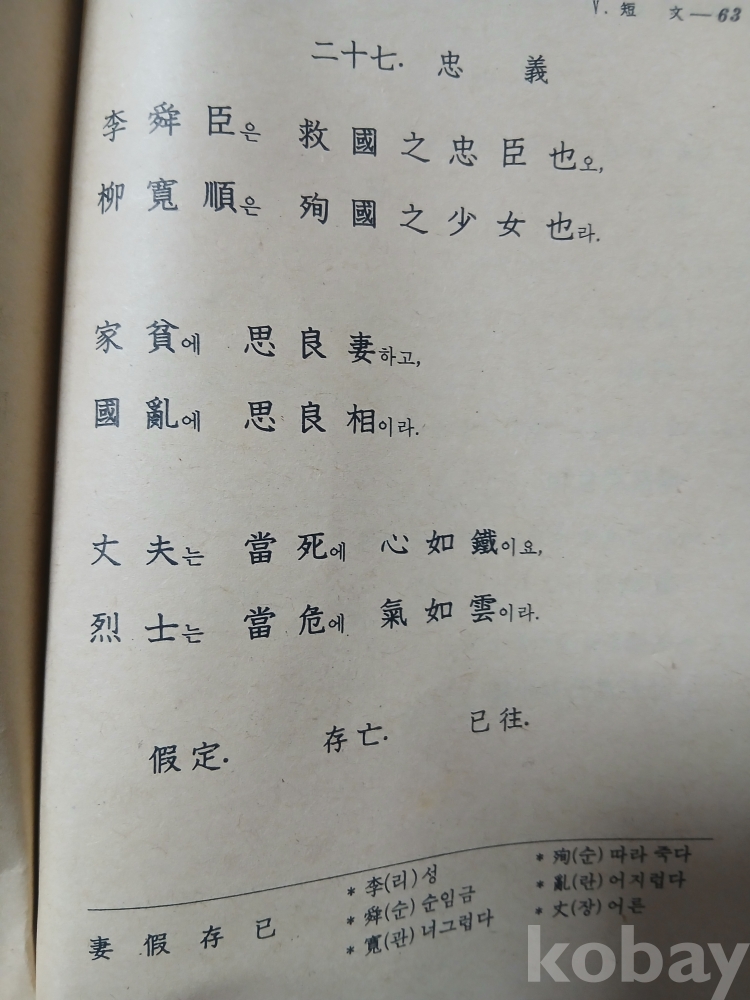 V. 短 文 — 63
二十七. 忠 義
李舜臣은 救國之忠臣也오,
柳寬順은 殉國之少女也라.
家貧에 思良妻하고,
國亂에 思良相이라.
丈夫는 當死에 心如鐵이요,
烈士는 當危에 氣如雲이라.
假定. 存亡. 已往.
妻 假 存 已
* 李(리) 성
* 舜(순) 순임금
* 寬(관) 너그럽다
* 殉(순) 따라 죽다
* 亂(란) 어지럽다
* 丈(장) 어른
kobay